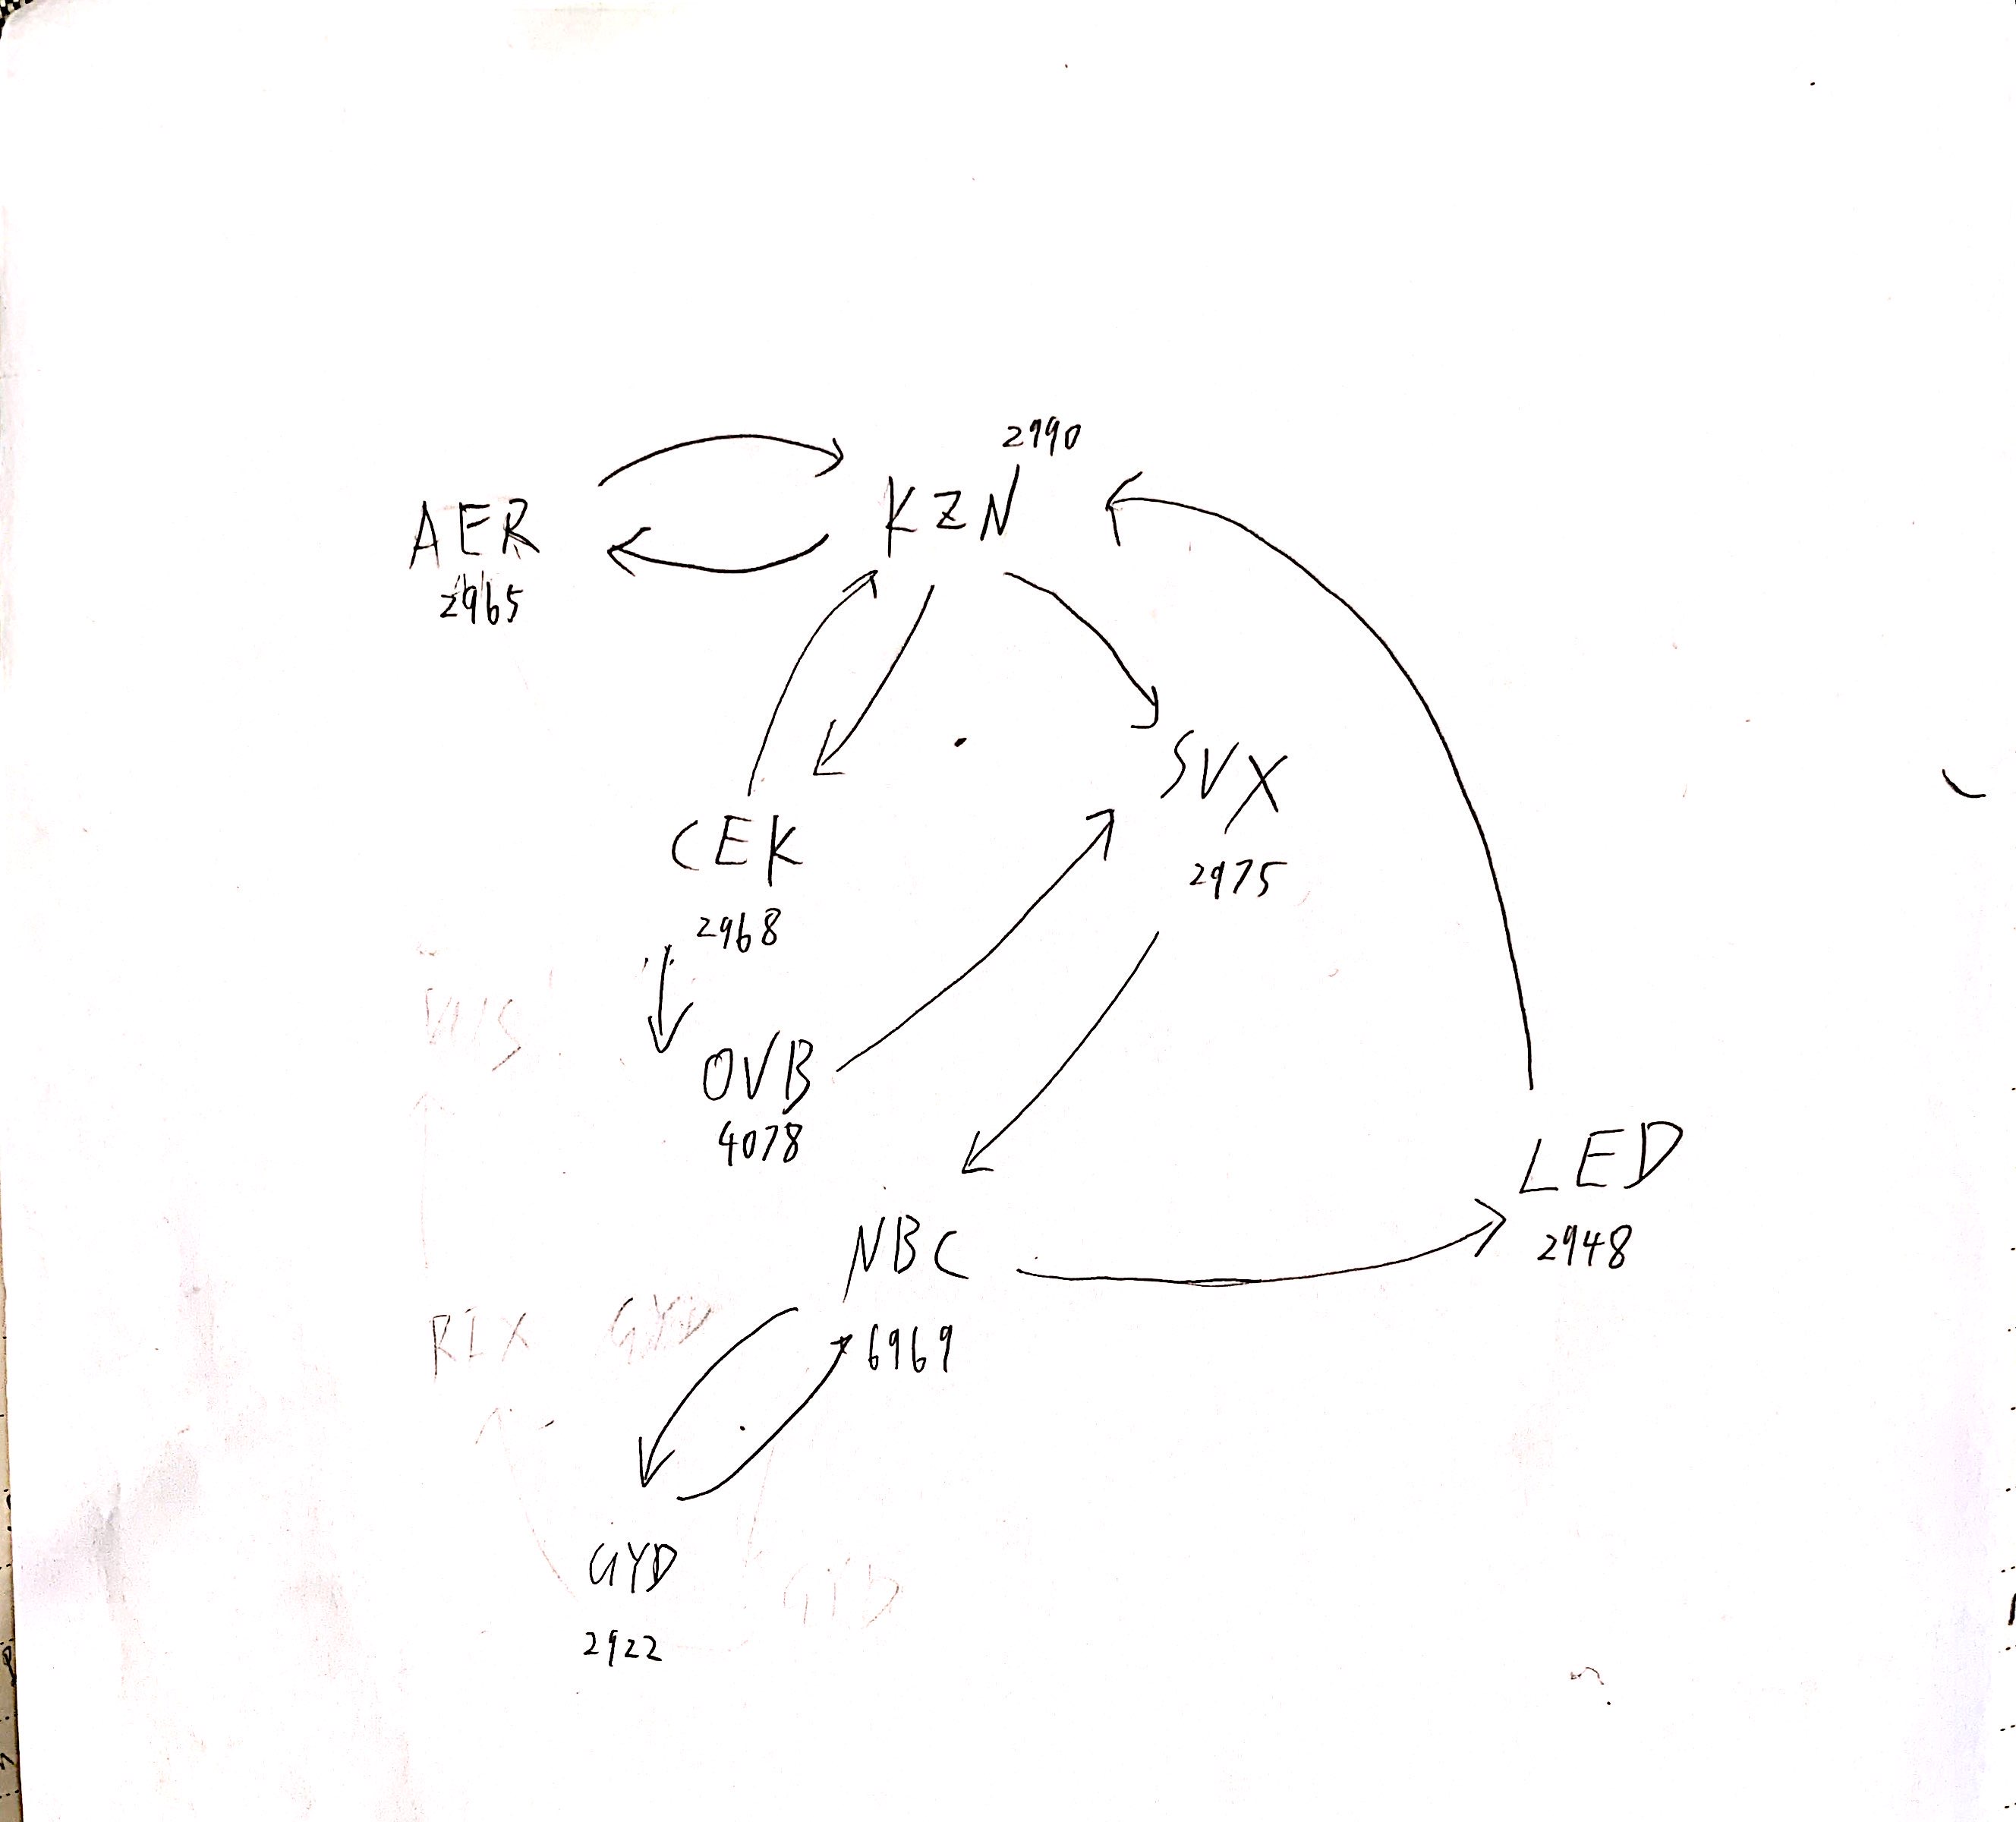 2990
KZN
AER
2965
SVX
2975
CEK
2968
OVB
4078
LED
2948
NBC
6969
RIX GYD
GYD
2922